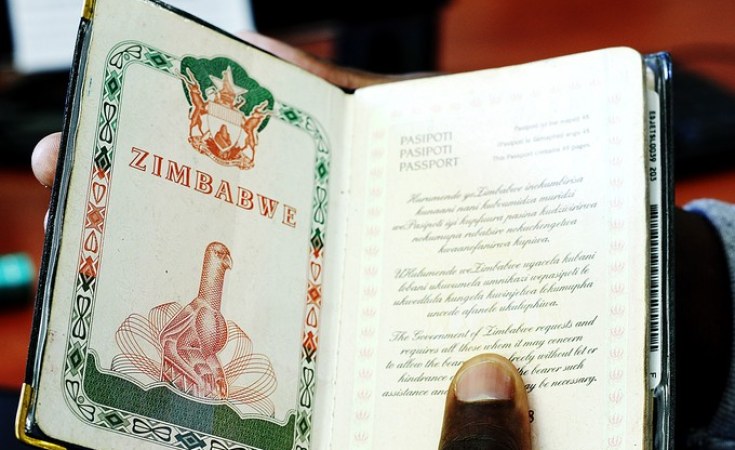 ZIMBABWE
PASIPOTI
PASIPOTI
PASSPORT
This Passport contains pages
Hurumende yeZimbabwe inokumbirisa
kunaani nani kubvumidza muridzi
wePasipoti iyi kupfuura pasina kudzivirirwa
nokumupa rubatsiro nokuchengetwa
kwaanofanirwa kupiwa.
UHulumende weZimbabwe uyacela kubani
lobani ukuvumela umnikazi wepasipoti le
ukwedlula kungela kuvinjelwa lokumupha
uncedo afanele ukuluphiwa.
The Government of Zimbabwe requests and
requires all those whom it may concern
to allow the bearer freely without let or
hindrance the bearer such
assistance and may be necessary.